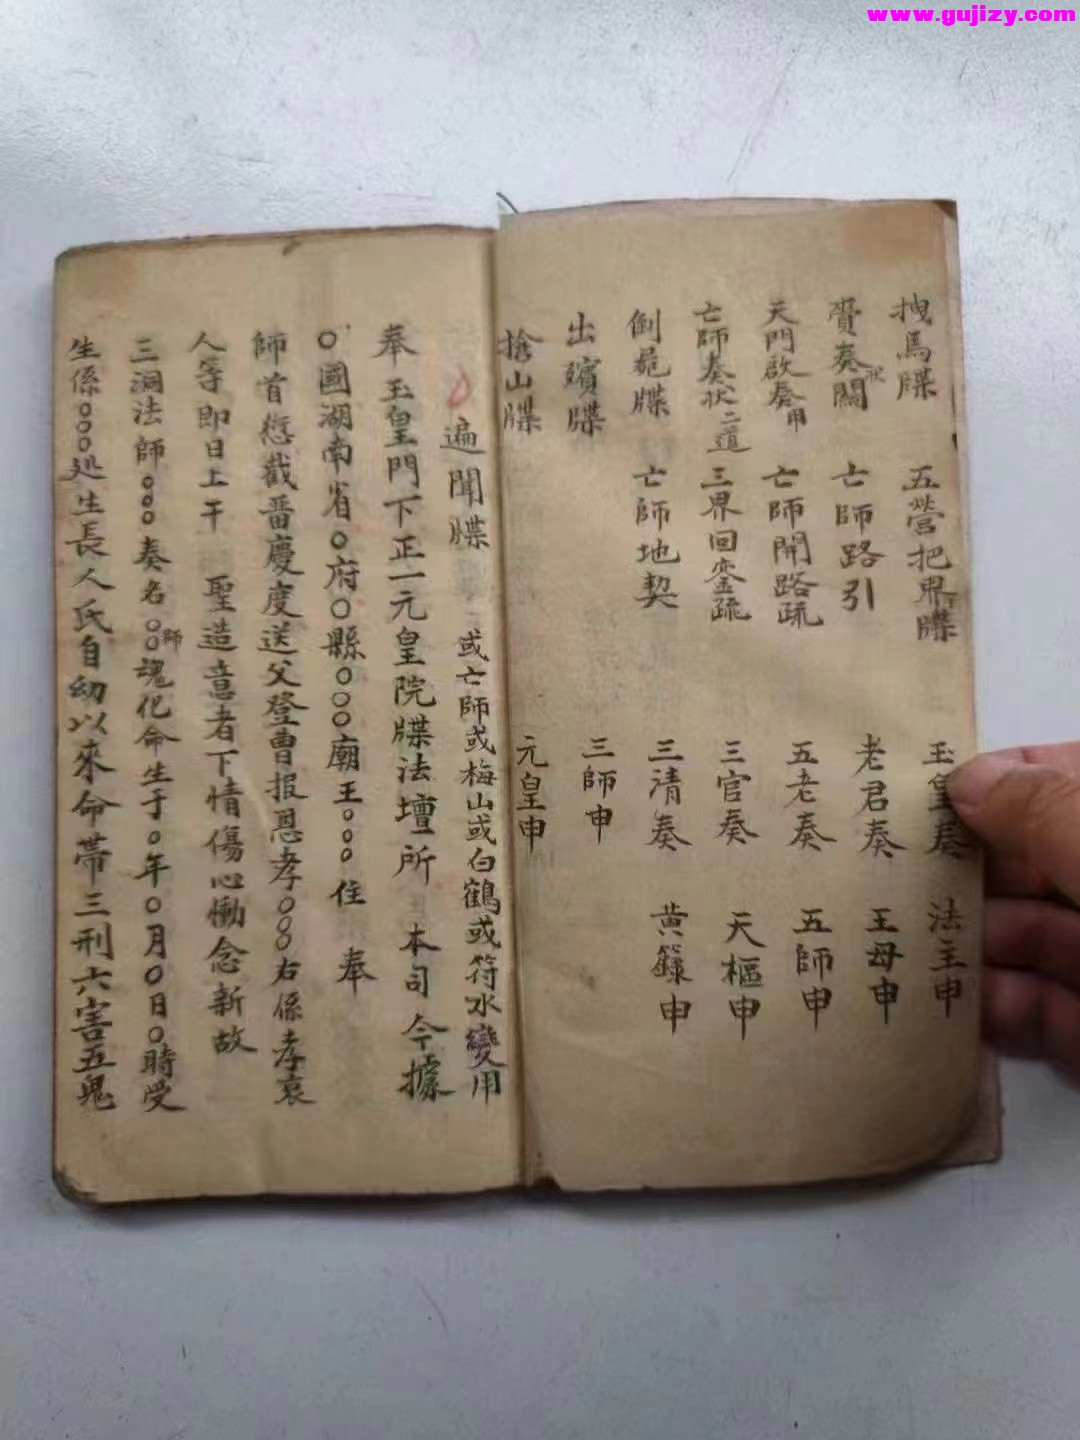 www.gujizy.com
拽馬牒 五營把界牒 玉皇奏 法主申
賫奏關狀 亡師路引 老君奏 王母申
天門啟奏申 亡師開路疏 五老奏 五師申
亡師奏状二道 三界回鑾疏 三官奏 天樞申
倒旎牒 亡師地契 三清奏 黄籙申
出殯牒 三師申
搶山牒 元皇申
遍聞牒 或亡師或梅山或白鶴或符水變用
奉 玉皇門下正一元皇院牒法壇所 本司今據
〇國湖南省〇府〇縣〇〇〇廟王〇〇〇住 奉
師首愆截番慶度送父登曹报恩孝〇〇〇右係孝哀
人等即日上干 聖造意者下情傷心慟念新故
三洞法師〇〇〇奏名〇〇師魂化命生于〇年〇月〇日〇時受
生係〇〇〇处生長人氏自幼以來命帶三刑六害五鬼